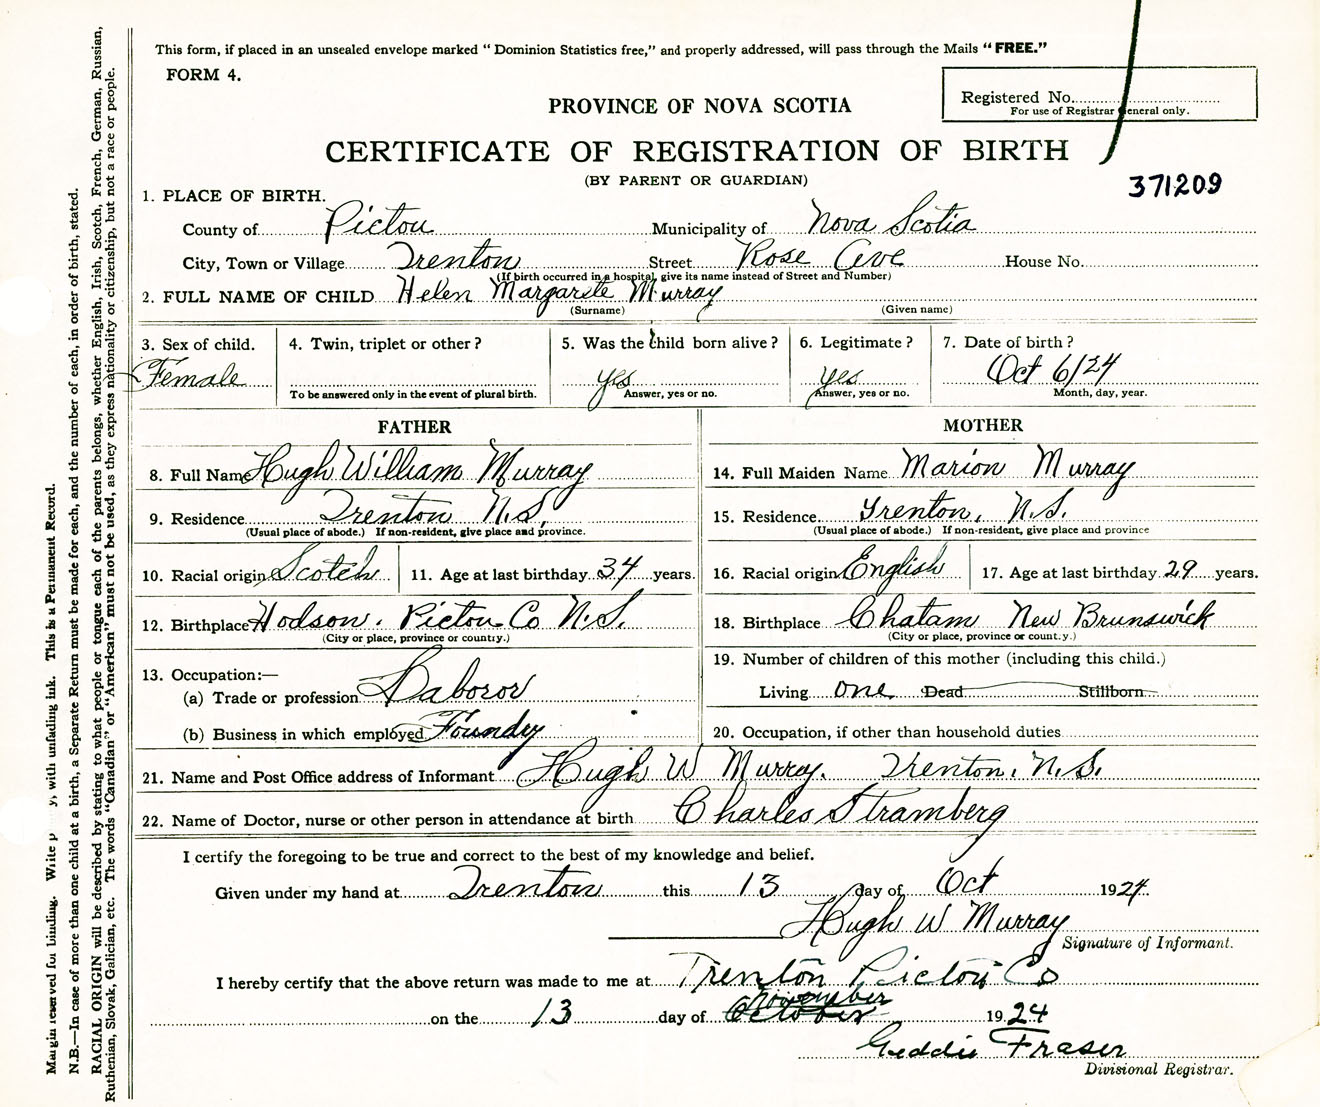 This form, if placed in an unsealed envelope marked "Dominion Statistics free," and properly addressed, will pass through the Mails "FREE."
FORM 4.
Registered No.
For use of Registrar General only.
PROVINCE OF NOVA SCOTIA
CERTIFICATE OF REGISTRATION OF BIRTH
(BY PARENT OR GUARDIAN)
371209
1. PLACE OF BIRTH.
County of Pictou Municipality of Nova Scotia
City, Town or Village Trenton Street Rose Ave House No.
(If birth occurred in a hospital, give its name instead of Street and Number)
2. FULL NAME OF CHILD Helen Margarite Murray
(Surname) (Given name)
3. Sex of child. 4. Twin, triplet or other? 5. Was the child born alive? 6. Legitimate? 7. Date of birth?
Female yes yes Oct 6/24
To be answered only in the event of plural birth. Answer, yes or no. Answer, yes or no. Month, day, year.
FATHER MOTHER
8. Full Name Hugh William Murray 14. Full Maiden Name Marion Murray
9. Residence Trenton N.S. 15. Residence Trenton, N.S.
(Usual place of abode.) If non-resident, give place and province. (Usual place of abode.) If non-resident, give place and province
10. Racial origin Scotch 11. Age at last birthday 34 years. 16. Racial origin English 17. Age at last birthday 29 years.
12. Birthplace Hodson. Pictou Co N.S. 18. Birthplace Chatam New Brunswick
(City or place, province or country.) (City or place, province or count.y.)
13. Occupation:— 19. Number of children of this mother (including this child.)
(a) Trade or profession Laboror Living one Dead Stillborn
(b) Business in which employed Foundry 20. Occupation, if other than household duties
21. Name and Post Office address of Informant Hugh W Murray. Trenton, N.S.
22. Name of Doctor, nurse or other person in attendance at birth Charles Stramberg
I certify the foregoing to be true and correct to the best of my knowledge and belief.
Given under my hand at Trenton this 13 day of Oct 1924.
Hugh W Murray
Signature of Informant.
I hereby certify that the above return was made to me at Trenton Pictou Co
November
on the 13 day of October 1924
Geddie Fraser
Divisional Registrar.
Margin reserved for binding. Write y, with unfading ink. This is a Permanent Record.
N.B.—In case of more than one child at a birth, a Separate Return must be made for each, and the number of each, in order of birth, stated.
RACIAL ORIGIN will be described by stating to what people or tongue each of the parents belongs, whether English, Irish, Scotch, French, German, Russian,
Ruthenian, Slovak, Galician, etc. The words "Canadian" or "American" must not be used, as they express nationality or citizenship, but not a race or people.